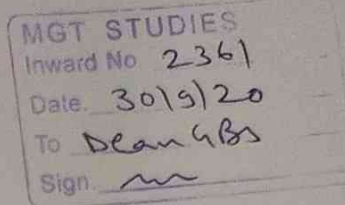 MGT STUDIES
Inward No 2361
Date. 30/9/20
To Dean GBS
Sign.